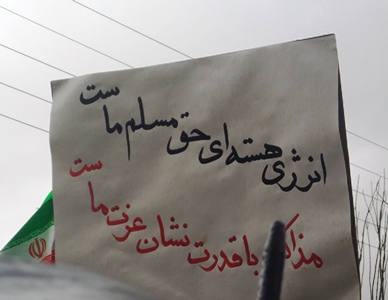 انرژی هسته‌ای حق مسلم ماست
مذاکره با قدرت نشان عزت ماست